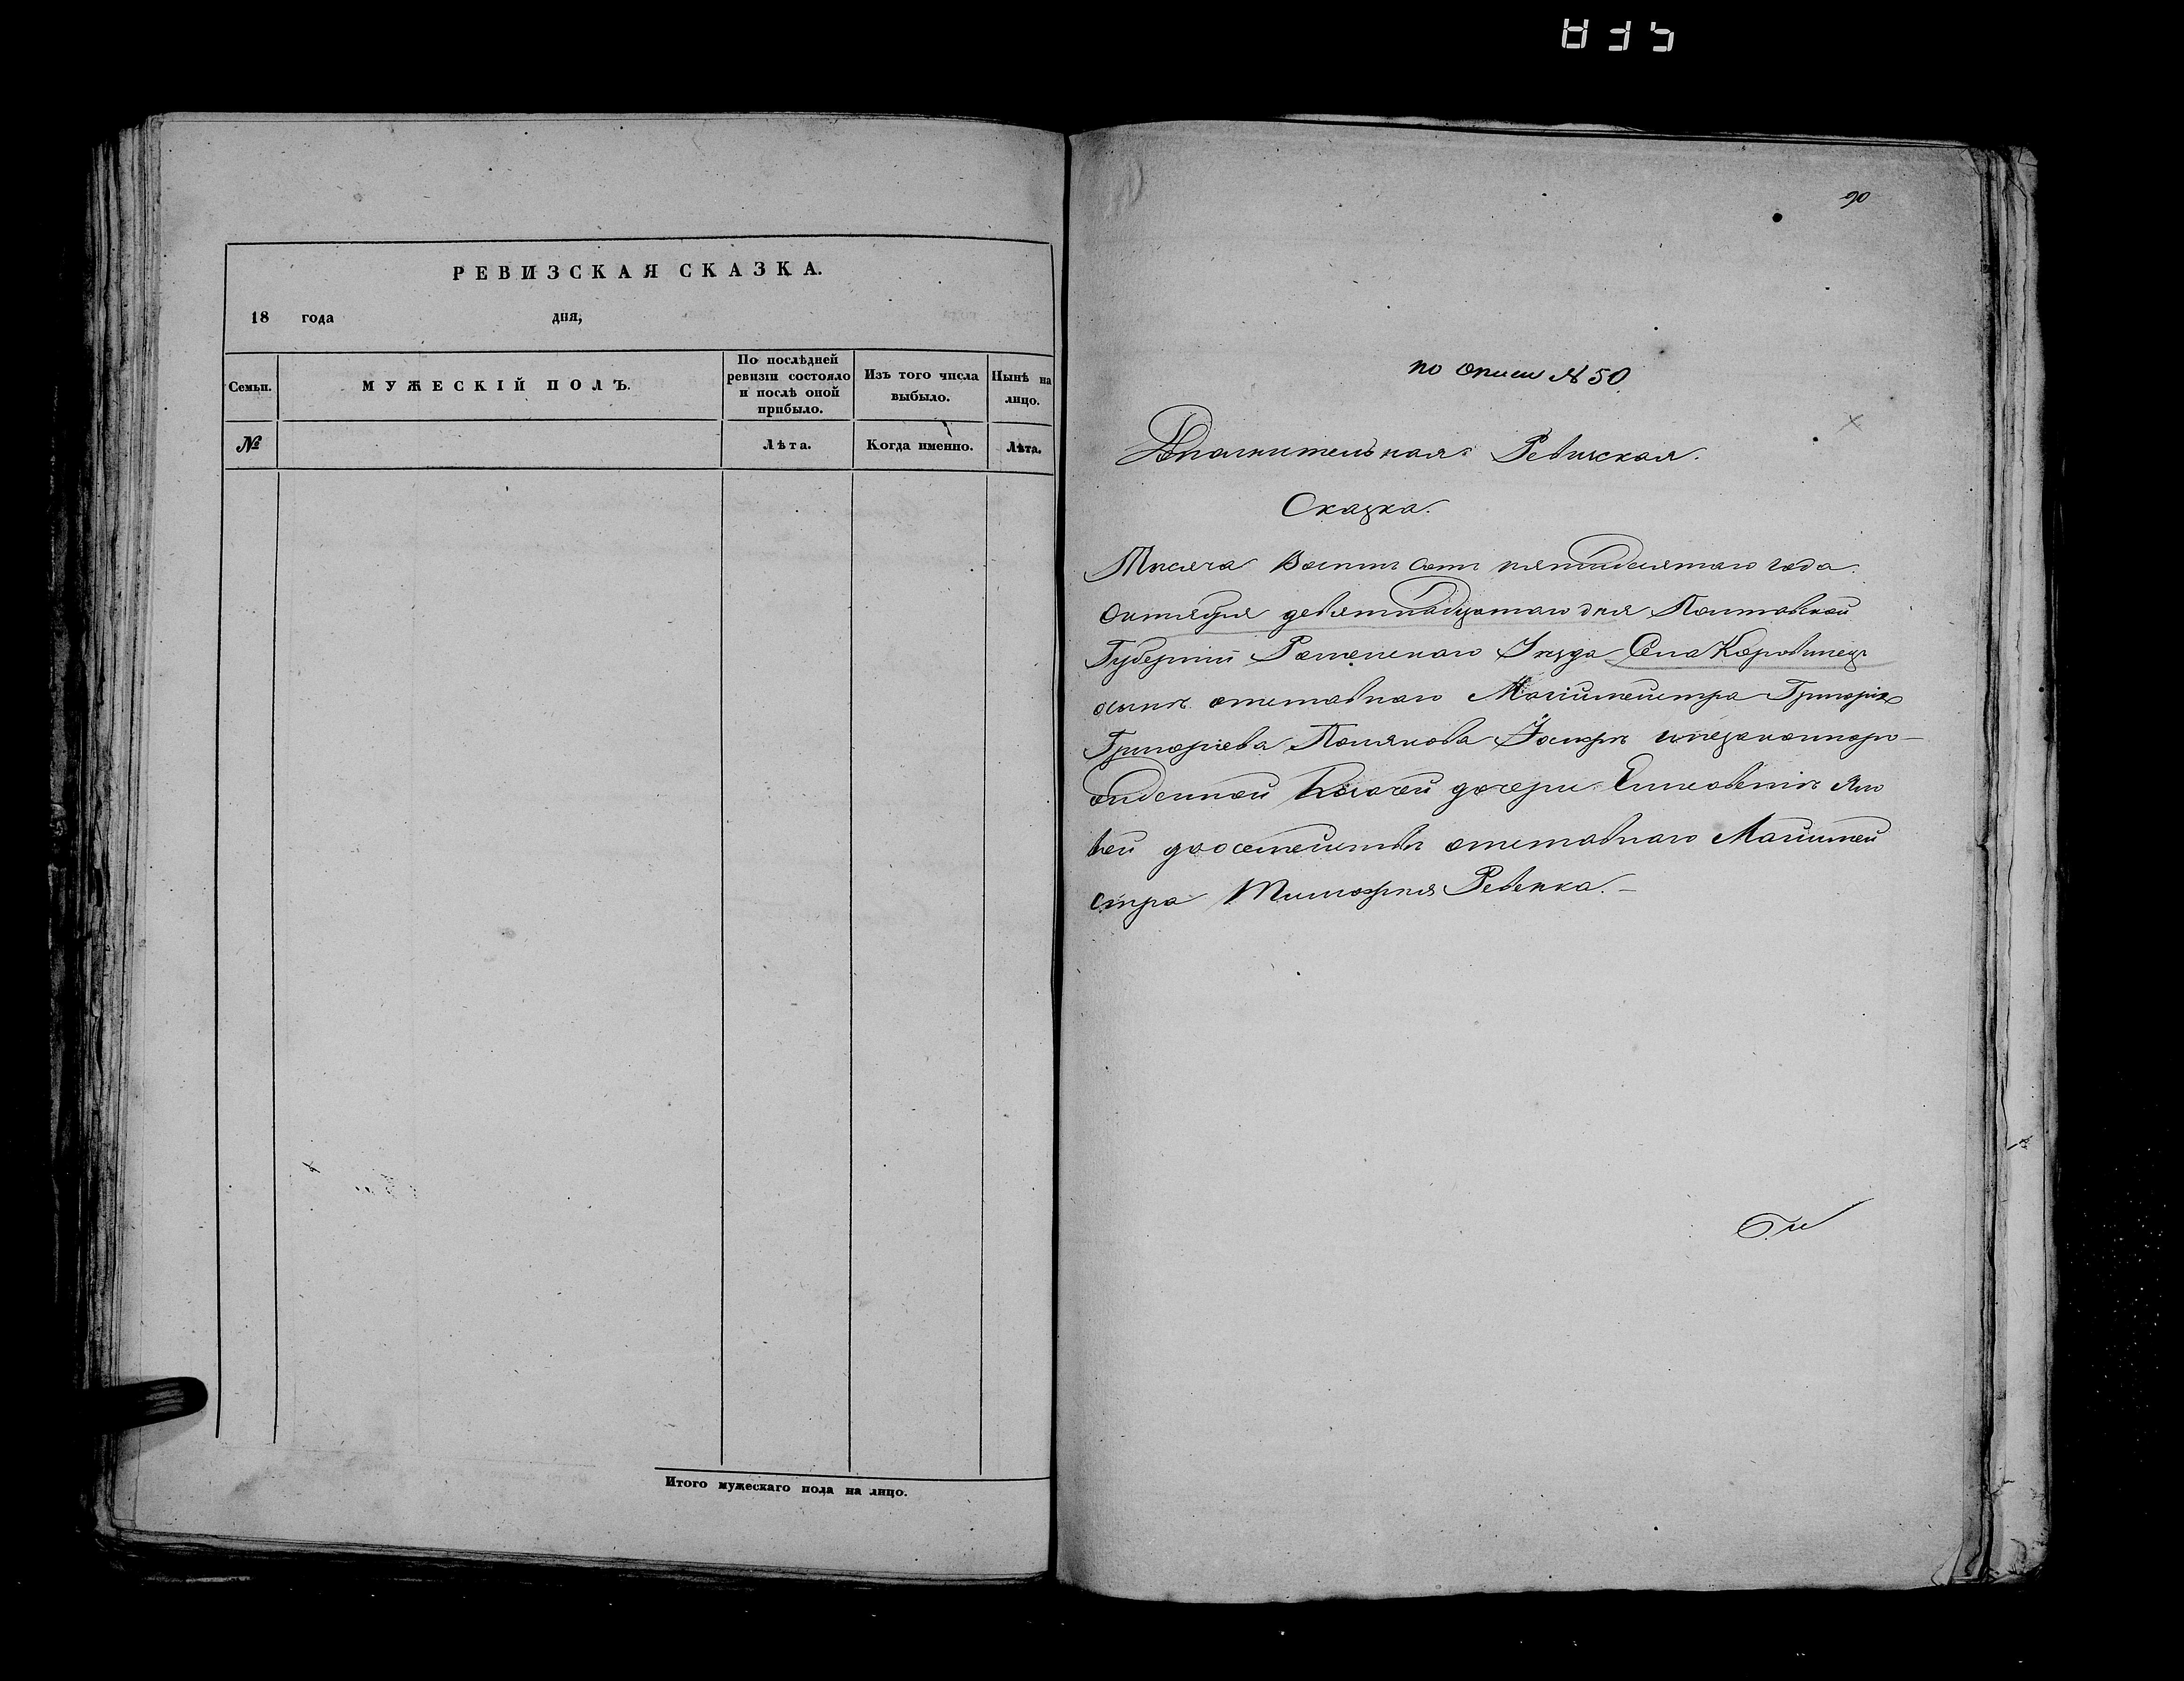 РЕВИЗСКАЯ СКАЗКА.
18 года дня,
Семьи.
МУЖЕСКІЙ ПОЛЪ.
По послѣдней
ревизіи состояло
и послѣ оной
прибыло.
Изъ того числа
выбыло.
Нынѣ на
лицо.
№
Лѣта.
Когда именно.
Лѣта.
Итого мужескаго пола на лицо.
90
по описи № 50
Дополнительная Ревизская
Сказка.
Тысяча Восемь сотъ пятидесятаго года
Октября девятнадцатаго дня Полтавской
Губерніи Роменскаго Уѣзда Села Коровинецъ
отставнаго Григорія
Григорьева Полякова незаконноро-
жденной дочери
отставнаго
стра Тимофея Ревенка.